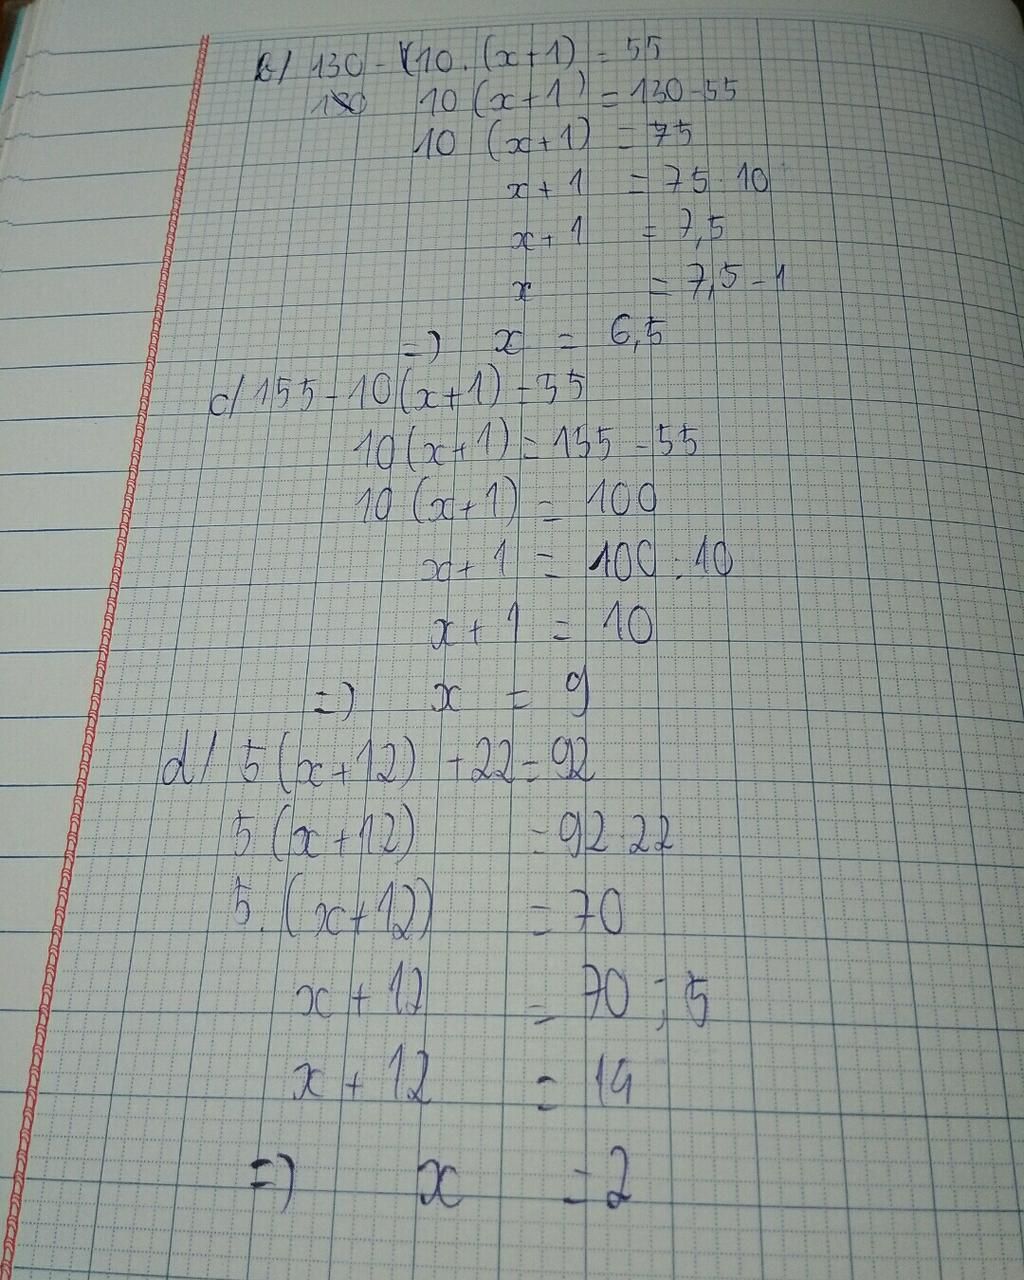 b/ 130 - (10. (x+1) = 55
10 (x+1) = 130-55
10 (x+1) = 75
x + 1 = 75 : 10
x + 1 = 7,5
x = 7,5 - 1
=> x = 6,5
c/ 155 - 10(x+1) = 55
10(x+1) = 155 - 55
10 (x+1) = 100
x + 1 = 100 : 10
x + 1 = 10
=> x = 9
d/ 5(x+12) + 22 = 92
5 (x+12) = 92-22
5. (x+12) = 70
x + 12 = 70 : 5
x + 12 = 14
=> x = 2